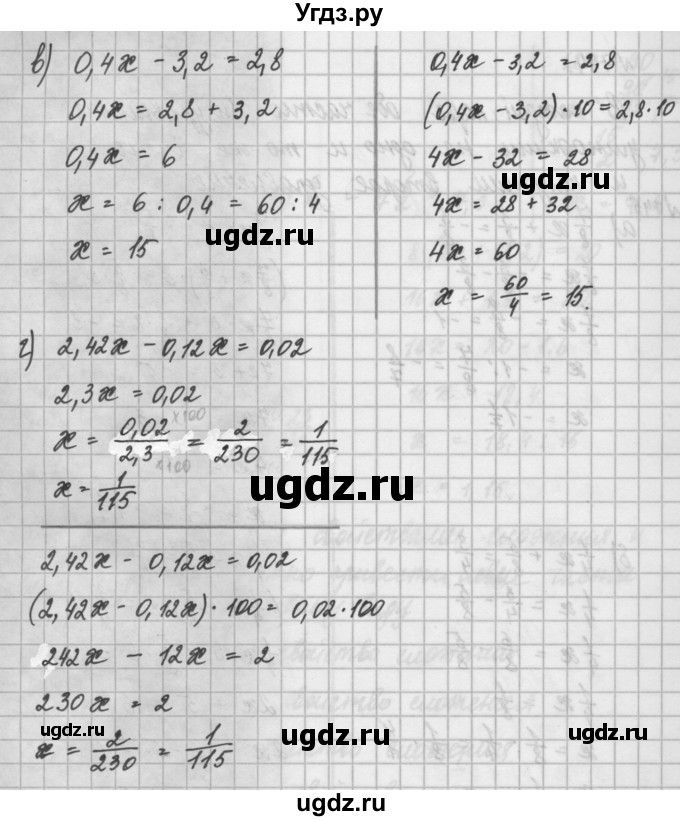 Угдз.ру
в) 0,4x - 3,2 = 2,8
0,4x = 2,8 + 3,2
0,4x = 6
x = 6 : 0,4 = 60 : 4
x = 15
0,4x - 3,2 = 2,8
(0,4x - 3,2) · 10 = 2,8 · 10
4x - 32 = 28
4x = 28 + 32
4x = 60
x = 60/4 = 15.
г) 2,42x - 0,12x = 0,02
2,3x = 0,02
x = 0,02 ×100 / 2,3 ×100 = 2/230 = 1/115
x = 1/115
2,42x - 0,12x = 0,02
(2,42x - 0,12x) · 100 = 0,02 · 100
242x - 12x = 2
230x = 2
x = 2/230 = 1/115
ugdz.ru
ugdz.ru
ugdz.ru
ugdz.ru
ugdz.ru
ugdz.ru
ugdz.ru
ugdz.ru